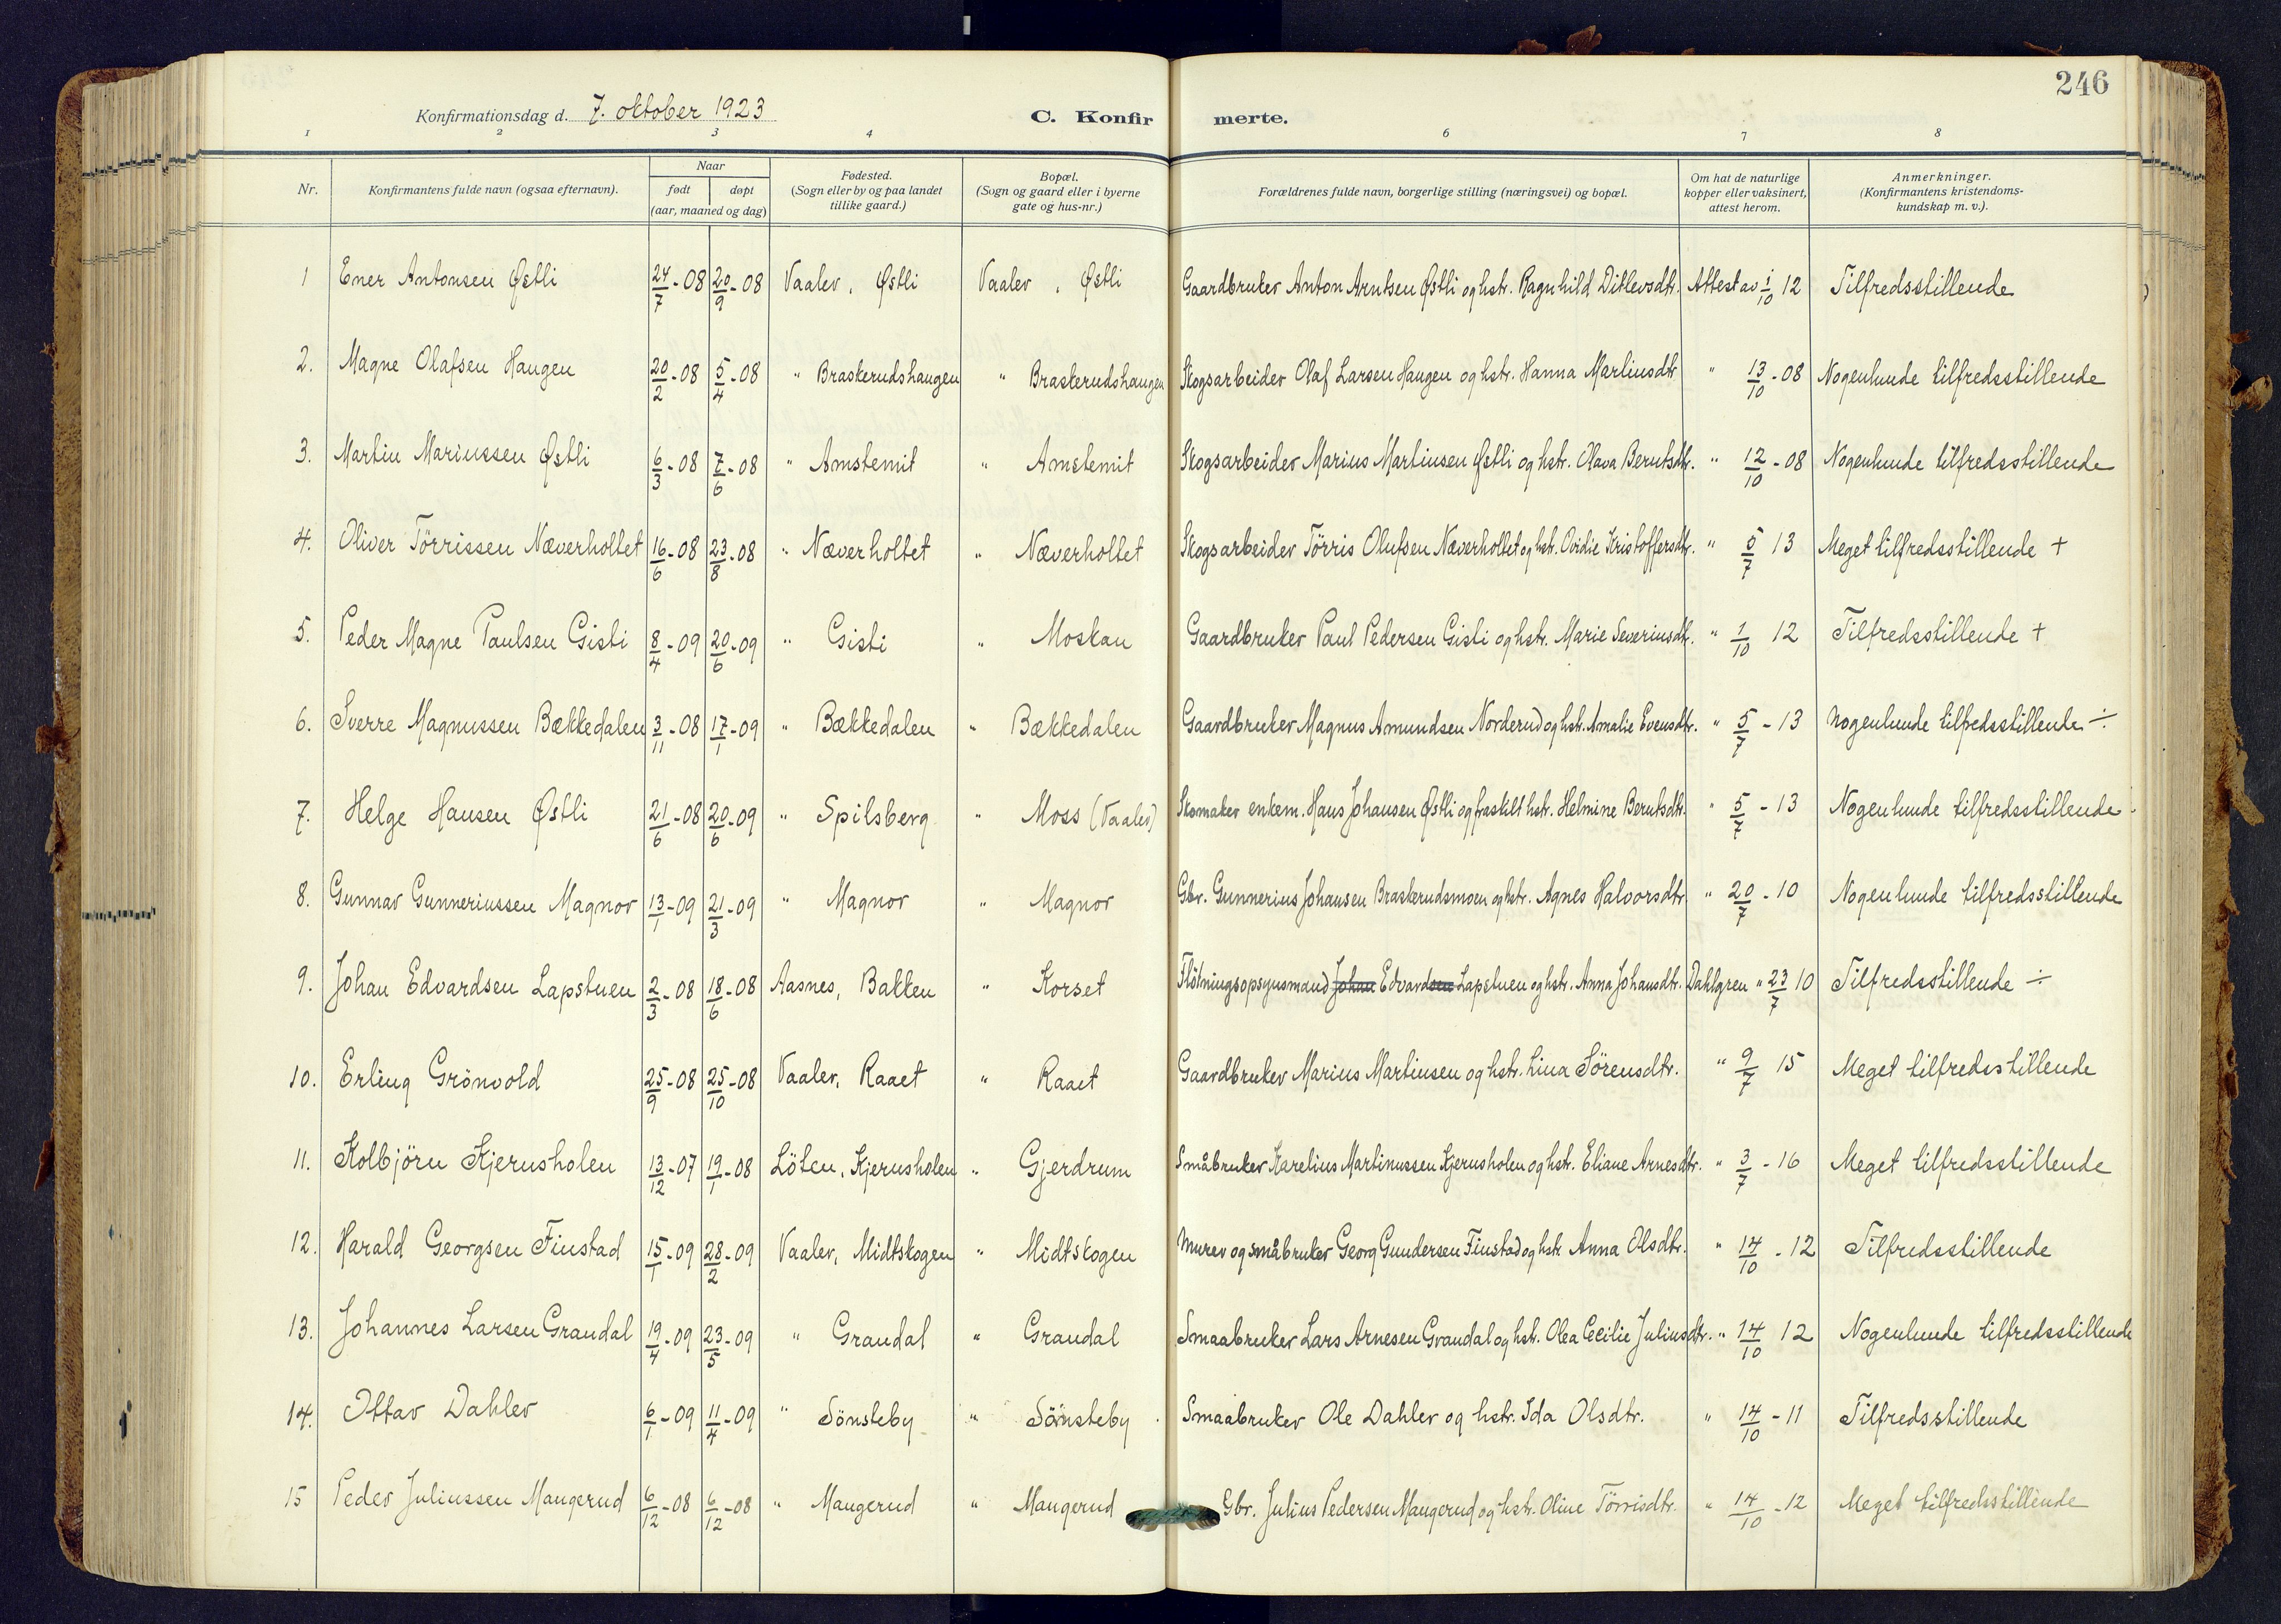 246
Konfirmationsdag d. 7. oktober 1923 C. Konfirmerte.
1 2 3 4 6 7 8
Nr. Konfirmantens fulde navn (ogsaa efternavn). Naar født døpt (aar, maaned og dag) Fødested. (Sogn eller by og paa landet tillike gaard.) Bopæl. (Sogn og gaard eller i byerne gate og hus-nr.) Forældrenes fulde navn, borgerlige stilling (næringsvei) og bopæl. Om hat de naturlige kopper eller vaksinert, attest herom. Anmerkninger. (Konfirmantens kristendoms-kundskap m. v.).
1 Ener Antonsen Østli 24/7-08 20/9-08 Vaaler, Østli Vaaler, Østli Gaardbruker Anton Arntsen Østli og hstr. Ragnhild Ditlevsdtr. Attest av 1/10 12 Tilfredsstillende
2. Magne Olafsen Haugen 20/2-08 5/4-08 " Braskerudshaugen " Braskerudshaugen Skogsarbeider Olaf Larsen Haugen og hstr. Hanna Martinsdtr " 13/10-08 Nogenlunde tilfredsstillende
3. Martin Mariussen Østli 6/3-08 7/6-08 " Arnstemit " Arnstemit Skogsarbeider Marius Martinsen Østli og hstr. Olava Berntsdtr. " 12/10-08 Nogenlunde tilfredsstillende
4. Oliver Törrissen Næverholtet 16/6-08 23/8-08 " Næverholtet " Næverholtet Skogsarbeider Törris Olufsen Næverholtet og hstr. Ovidie Kristoffersdtr. " 5/7 13 Meget tilfredsstillende +
5. Peder Magne Paulsen Gisti 8/4-09 20/6-09 " Gisti " Moskau Gaardbruker Paul Pedersen Gisti og hstr. Marie Severinsdtr. " 1/10 12 Tilfredsstillende +
6. Sverre Magnussen Bækkedalen 3/11-08 17/1-09 " Bækkedalen " Bækkedalen Gaardbruker Magnus Amundsen Norderud og hstr. Amalie Evensdtr. " 5/7-13 Nogenlunde tilfredsstillende ÷
7. Helge Hansen Østli 21/6-08 20/6-09 " Spilsberg " Moss (Vaaler) Skomaker enkem. Hans Johansen Østli og fraskilt hstr. Helmine Berntsdtr. " 5/7-13 Nogenlunde tilfredsstillende
8. Gunnar Gunneriussen Magnor 13/1-09 21/3-09 " Magnor " Magnor Gbr. Gunnerius Johansen Braskerudsmoen og hstr. Agnes Halvorsdtr. " 20/7-10 Nogenlunde tilfredsstillende
9. Johan Edvardsen Lapstuen 2/3-08 18/6-08 Aasnes, Bakken " Korset Flötningsopsynsmand Johan Edvardsen Lapstuen og hstr. Anna Johansdtr. Dahlgren " 23/7 10 Tilfredsstillende ÷
10. Erling Grönvold 25/9-08 25/10-08 Vaaler, Raaet " Raaet Gaardbruker Marius Martinsen og hstr. Lina Sörensdtr. " 9/7 15 Meget tilfredsstillende
11. Kolbjörn Kjernsholen 13/12-07 19/1-08 Löten, Kjernsholen " Gjerdrum Småbruker Karelius Martinussen Kjernsholen og hstr. Eliane Arnesdtr. " 3/7-16 Meget tilfredsstillende
12. Harald Georgsen Finstad 15/1-09 28/2-09 Vaaler, Midtskogen " Midtskogen Murer og småbruker Georg Gundersen Finstad og hstr. Anna Olsdtr. " 14/10-12 Tilfredsstillende
13. Johannes Larsen Grandal 19/4-09 23/5-09 " Grandal " Grandal Smaabruker Lars Arnesen Grandal og hstr. Olea Cecilie Juliusdtr. " 14/10 12 Nogenlunde tilfredsstillende
14. Ottar Dahler 6/1-09 11/4-09 " Sönsteby " Sönsteby Smaabruker Ole Dahler og hstr. Ida Olsdtr. " 14/10-11 Tilfredsstillende
15 Peder Juliussen Maugerud 6/12-08 6/12-08 " Maugerud " Maugerud Gbr. Julius Pedersen Maugerud og hstr. Oline Törrisdtr. " 14/10-12 Meget tilfredsstillende